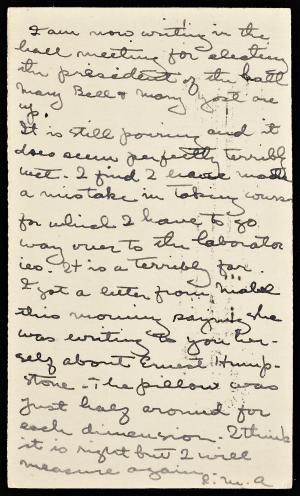 I am now writing in the
hall meeting for electing
the president of the hall
Mary Bell & Mary Yost are
up.
It is still pouring and it
does seem perfectly terribly
wet. I find I have made
a mistake in taking courses
for which I have to go
way over to the laborator
ies. It is a terribly far.
I got a letter from Mabel
this morning saying she
was writing to you her-
self about Ernest Hump-
stone. The pillow was
just half around for
each dimension. I think
it is right but I will
measure again. E.M.A